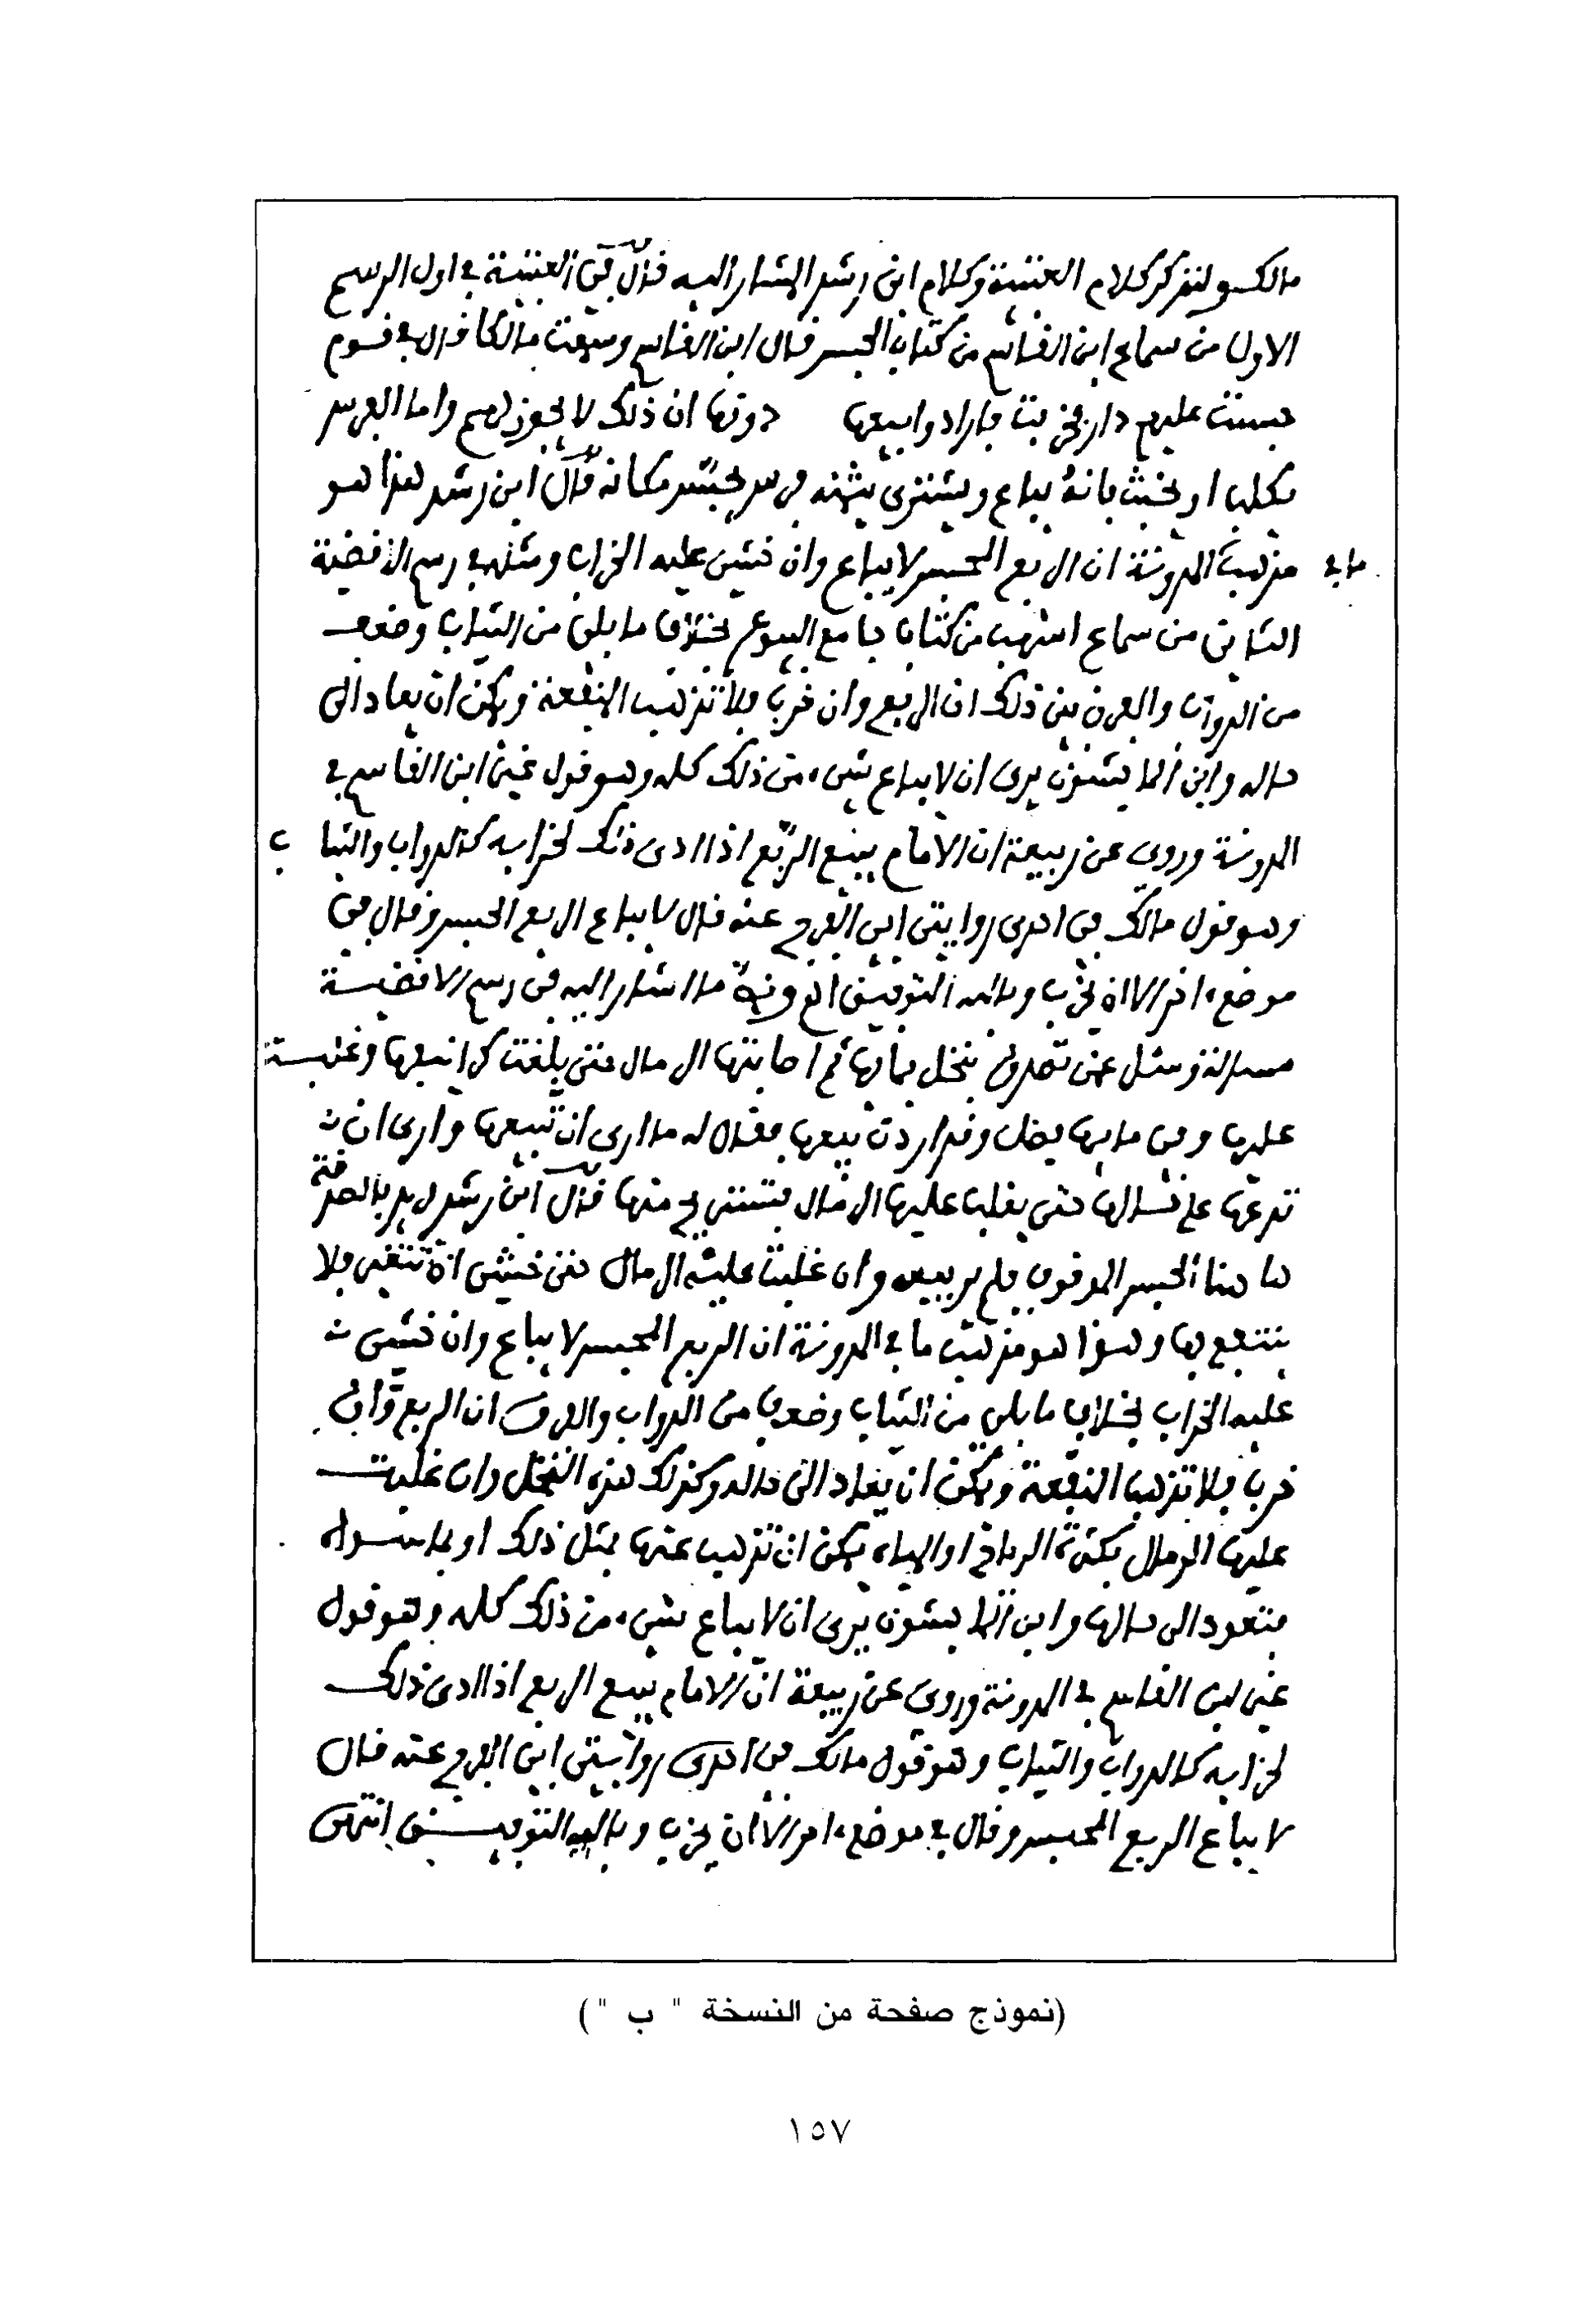 مالك ولنذكر كلام العتبية وكلام ابن رشد المشار اليه قال في العتبية في اول الرسم
الاول من سماع ابن القاسم من كتاب الحبس قال ابن القاسم وسمعت مالكا قال في قوم
حبست عليهم دار فخربت فارادوا بيعها دونها ان ذلك لا يجوز لهم واما الفرس
يكلب او يخبث فانه يباع ويشترى بثمنه فرس يحبس مكانه قال ابن رشد هذا هو
مذهب المدونة ان الربع الحبس لا يباع وان خشي عليه الخراب ومثله في رسم الاقضية
ما في
الثاني من سماع اشهب من كتاب جامع البيوع بخلاف ما بلي من الثياب وضعف
من الدواب والفرق بين ذلك ان الربع وان خرب فلا تذهب البقعة ويمكن ان يعاد الى
حاله وابن الماجشون يرى ان لا يباع شيء من ذلك كله وهو قول غير ابن القاسم في
المدونة وروي عن ربيعة ان الامام يبيع الربع اذا ادى ذلك لخرابه كالدواب والثياب
وهو قول مالك في احدى روايتي ابي الفرج عنه قال لا يباع الربع الحبس وقال في
موضع اخر الا ان يخرب وبالله التوفيق ما اشار اليه في رسم الاقضية
مسالة وسئل عمن تصدق بنخل بمايها ثم اصابتها الرمال حتى بلغت كرانيفها وغلبت
عليها وفي مايها فضل وقد اردت بيعها فقال له ما ارى ان تبيعها وارى ان
تدعها على حالها حتى يغلب عليها الرمال فتستريح منها قال ابن رشد يريد بالصدقة
ها هنا الحبس الموقوف فلم ير بيعه وان غلبت عليه الرمال حتى خشي ان تفنى فلا
ينتفع بها وهذا هو مذهب ما في المدونة ان الربع المحبس لا يباع وان خشي
عليه الخراب بخلاف ما بلي من الثياب وضعف من الدواب والفرق ان الربع وان
خرب فلا تذهب البقعة ويمكن ان يعاد الى حاله وكذلك هذه النخل وان غلبت
عليها الرمال بكثرة الرياح او المياه يمكن ان تذهب عنها بمثل ذلك او بما سواه
فتعود الى حالها وابن الماجشون يرى ان لا يباع شيء من ذلك كله وهو قول
غير ابن القاسم في المدونة وروي عن ربيعة ان الامام يبيع الربع اذا ادى ذلك
لخرابه كالدواب والثياب وهو قول مالك في احدى روايتي ابي الفرج عنه قال
لا يباع الربع المحبس وقال في موضع اخر الا ان يخرب وبالله التوفيق انتهى
(نموذج صفحة من النسخة " ب ")
١٥٧